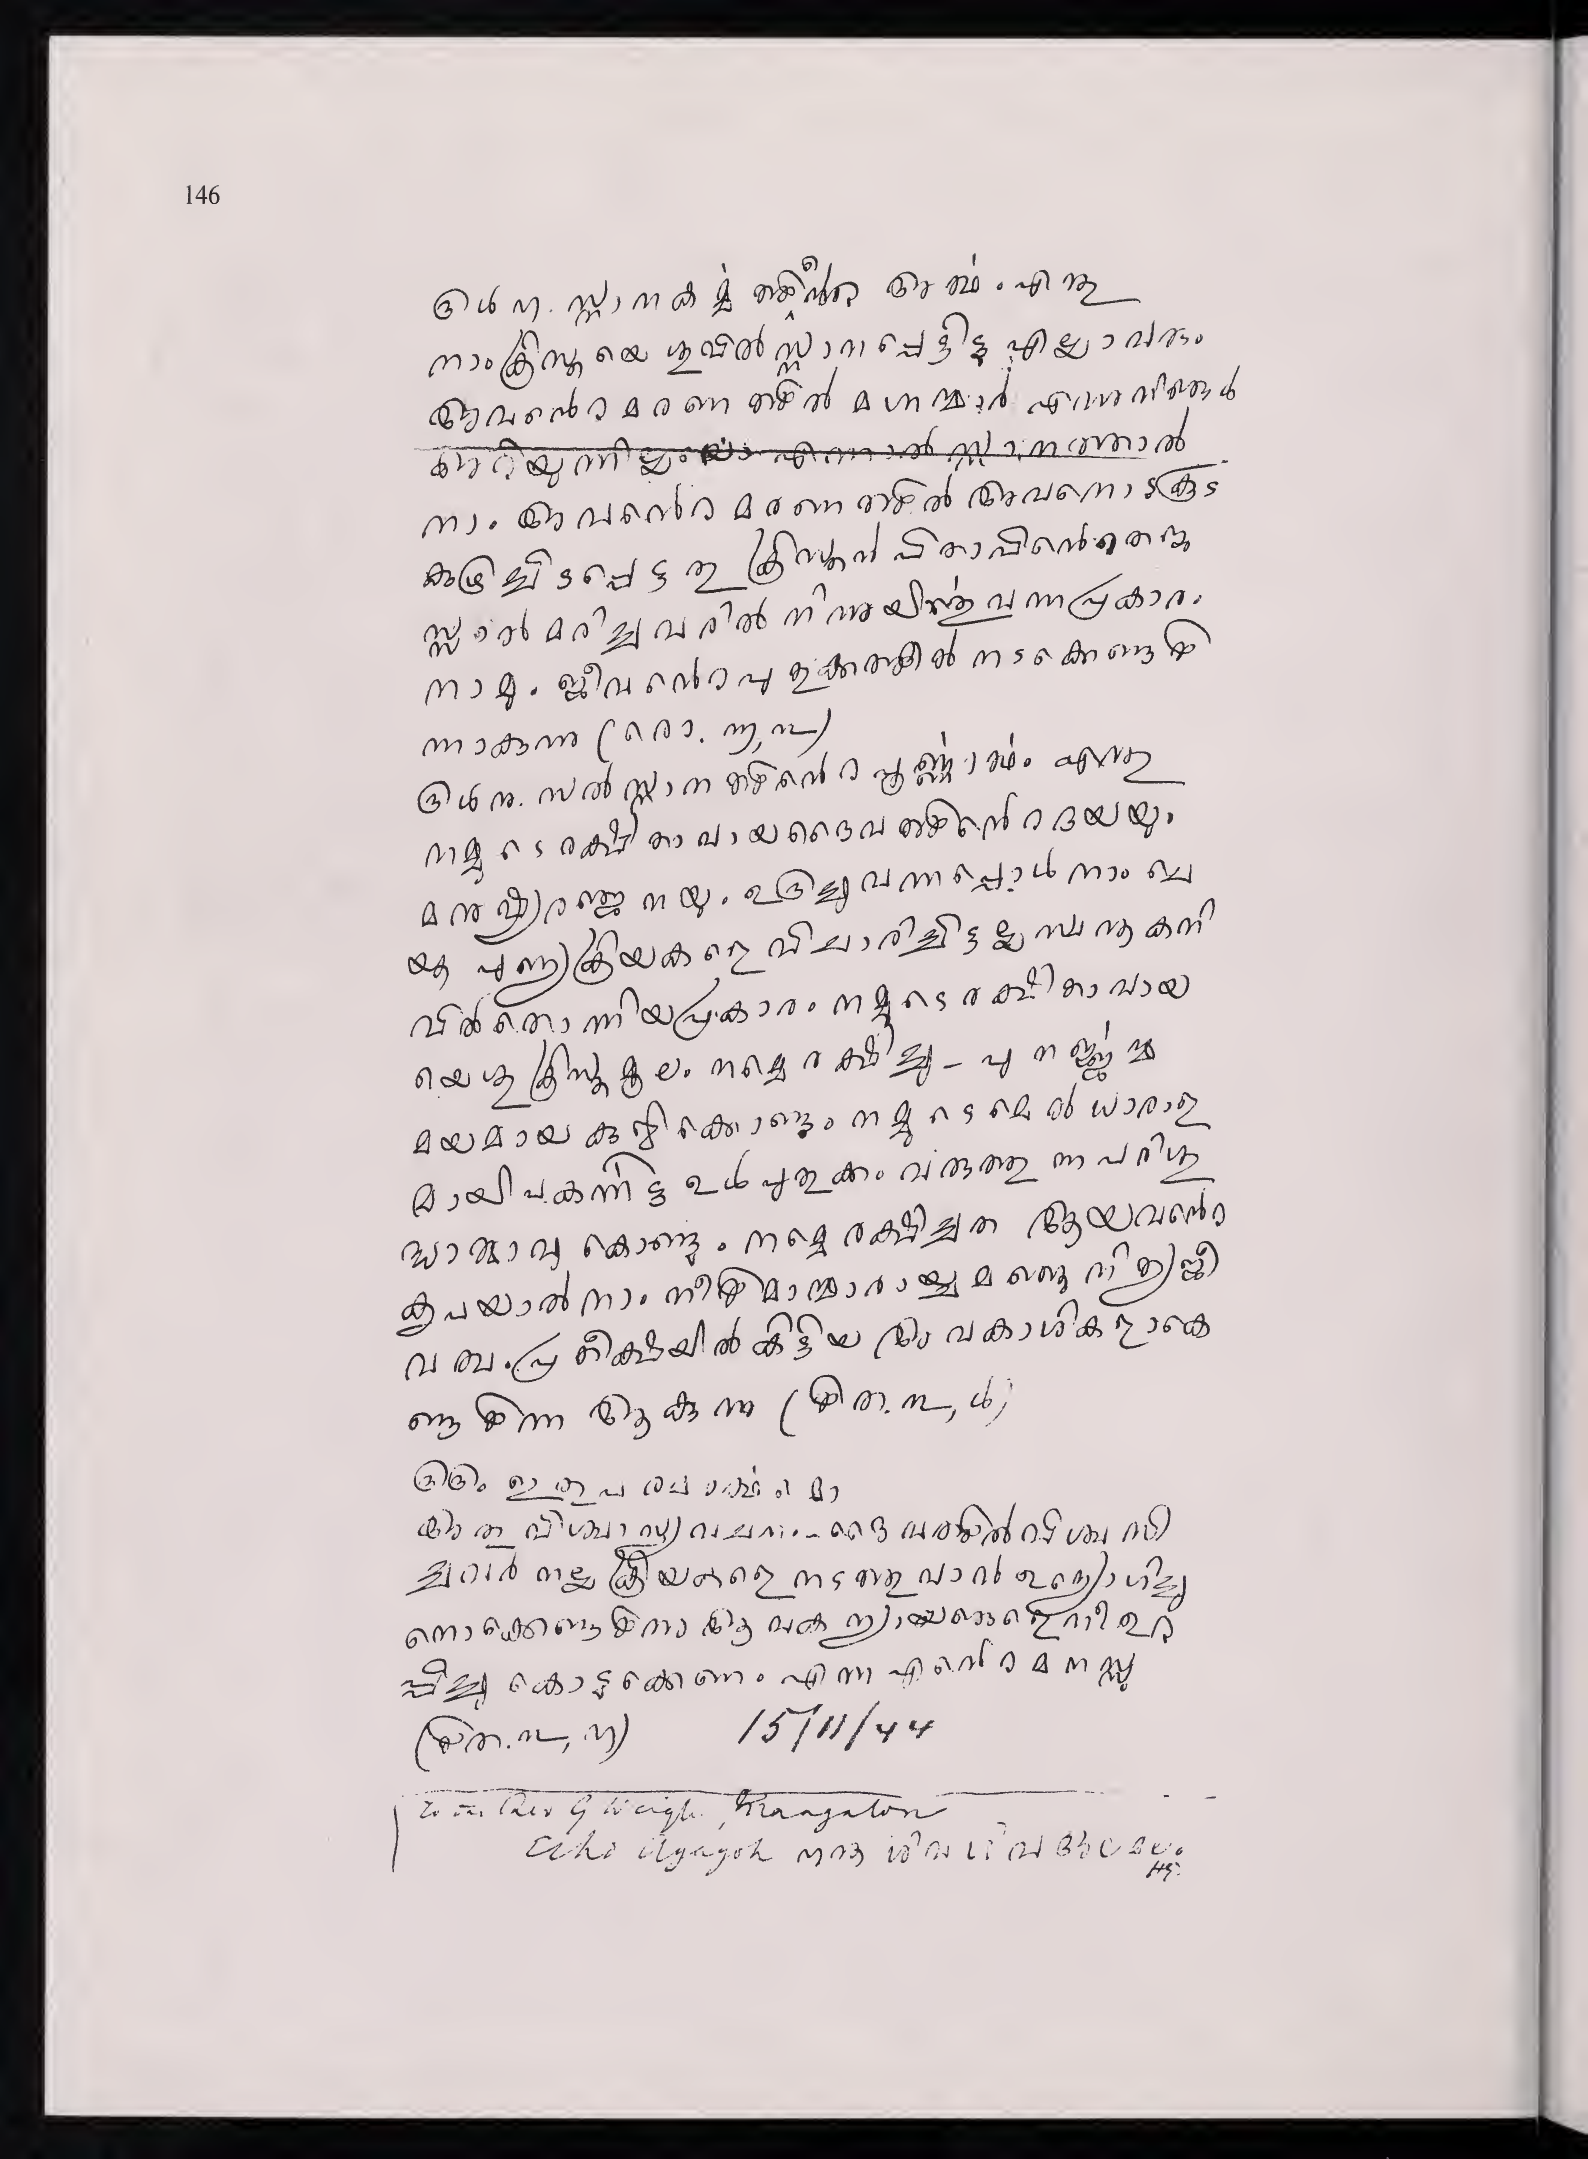 146
൫൪ ൩. സ്നാനകൎമ്മത്തിൻറെ അൎത്ഥം എന്തു
നാം ക്രിസ്തയെശുവിൽ സ്നാനപ്പെട്ടിട്ടു എല്ലാവരും
അവൻെറ മരണത്തിൽ മഗ്നന്മാർ എന്നു നിങ്ങൾ
അറിയുന്നില്ലയൊ എന്നാൽ സ്നാനത്താൽ
നാം അവൻെറ മരണത്തിൽ അവനൊടകൂട
കുഴിച്ചിടപ്പെട്ടതു ക്രിസ്തൻ പിതാവിൻെറ തെജ
സ്സാൽ മരിച്ചവരിൽ നിന്നു യിൎത്തു വന്നപ്രകാരം
നാമും ജീവൻെറ പുതുക്കത്തിൽ നടക്കെണ്ടതി
ന്നാകുന്നു (രൊ. ൬, ൪)
൫൪ ൪. സൽസ്നാനത്തിൻെറ പൂൎണ്ണാൎത്ഥം എന്തു
നമ്മുടെ രക്ഷിതാവായ ദൈവത്തിൻെറ ദയയും
മനുഷ്യരഞ്ജനയും ഉദിച്ചുവന്നപ്പൊൾ നാം ചെ
യ്ത പുണ്യക്രിയകളെ വിചാരിച്ചിട്ടല്ല സ്വന്ത കനി
വിൽ തൊന്നിയപ്രകാരം നമ്മുടെ രക്ഷിതാവായ
യെശു ക്രിസ്തമൂലം നമ്മെ രക്ഷിച്ചു - പുനൎജ്ജന്മ
മയമായ കുളികൊണ്ടും നമ്മുടെ മെൽ ധാരാള
മായി പകൎന്നിട്ടു ഉൾപുതുക്കം വരുത്തുന്ന പരിശു
ദ്ധാത്മാവു കൊണ്ടും നമ്മെ രക്ഷിച്ചത ആയവൻെറ
കൃപയാൽ നാം നീതിമാന്മാരായ്ചമഞ്ഞു നിത്യജീ
വത്വപ്രതീക്ഷയിൽ കിട്ടിയ അവകാശികളാകെ
ണ്ടതിന്ന ആകുന്നു (തിത. ൩, ൪)
൫൫. ഇതു പരമാൎത്ഥമൊ
അതു വിശ്വാസ്യവചനം - ദൈവത്തിൽ വിശ്വസി
ച്ചവർ നല്ല ക്രിയകളെ നടത്തുവാൻ ഉദ്യൊഗിച്ചു
നൊക്കെണ്ടതിന്നു ആ വക ന്യായങ്ങളെ നീ ഉറ
പ്പിച്ചു കൊടുക്കെണം എന്ന എൻെറ മനസ്സു
(തിത. ൩, ൮) 15/11/44
To the Rev G Weigle, Mangalore